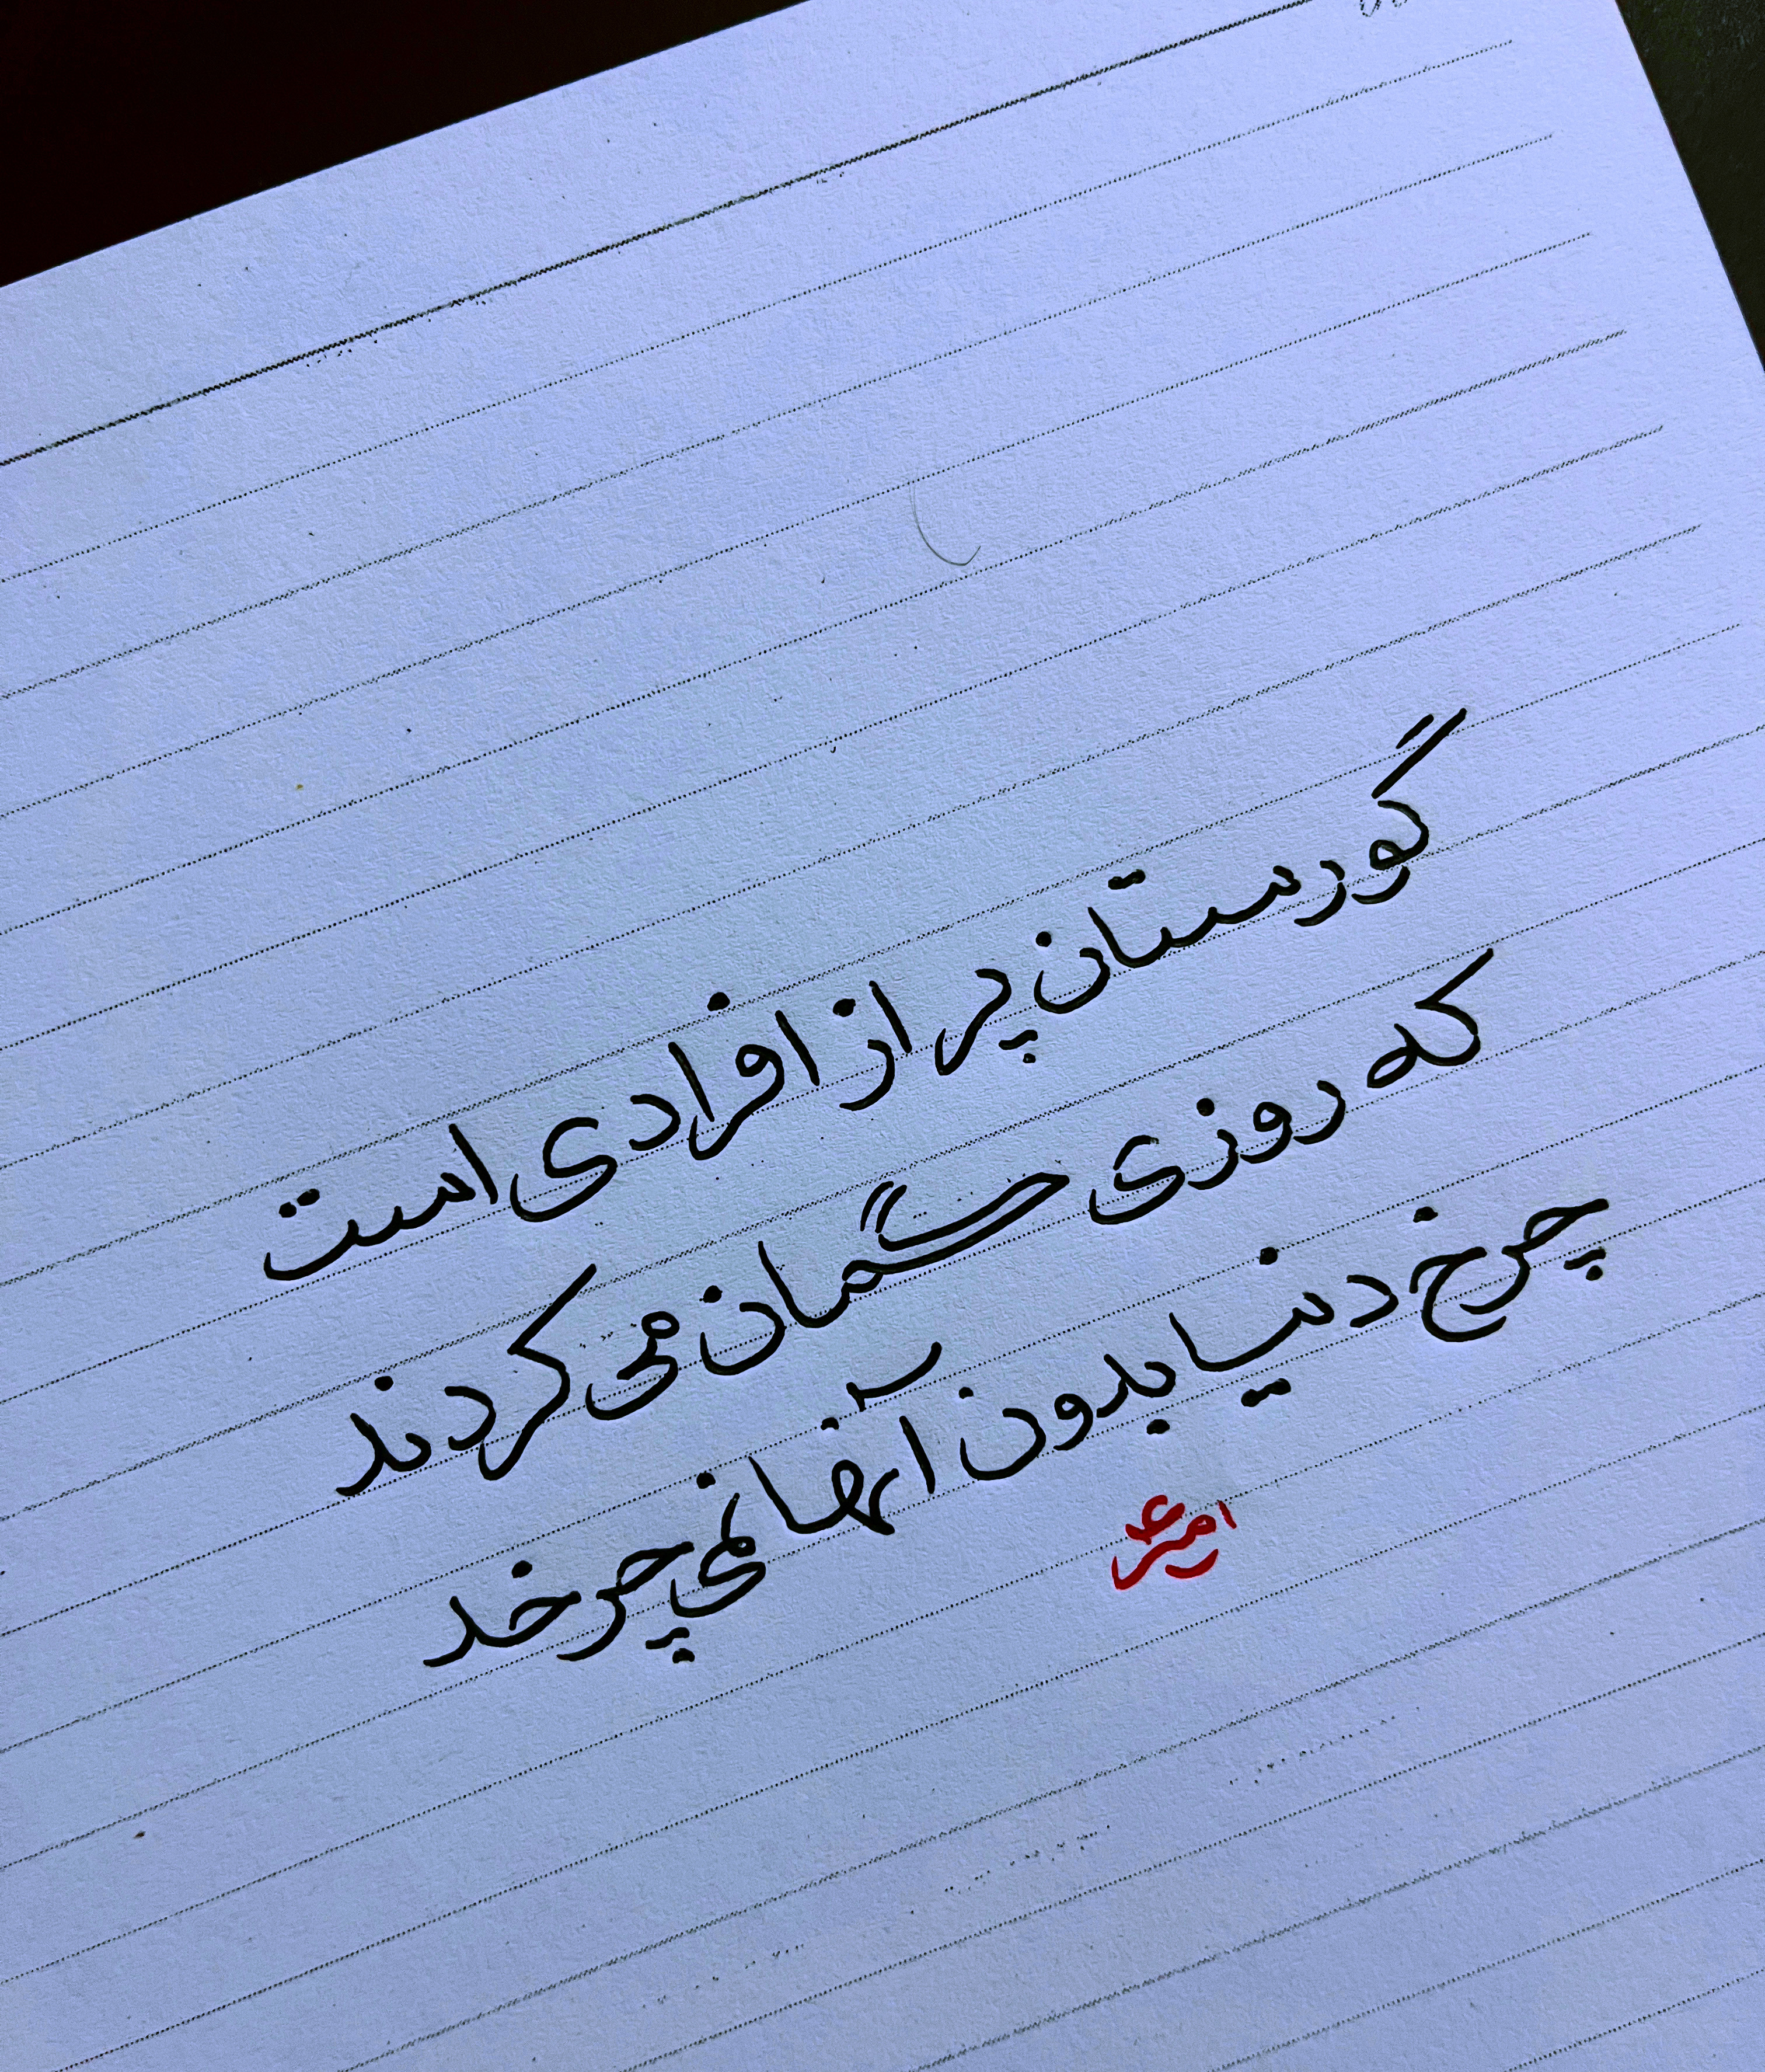 گورستان پر از افرادی است
که روزی گمان می کردند
چرخ دنیا بدون آنها نمی چرخد